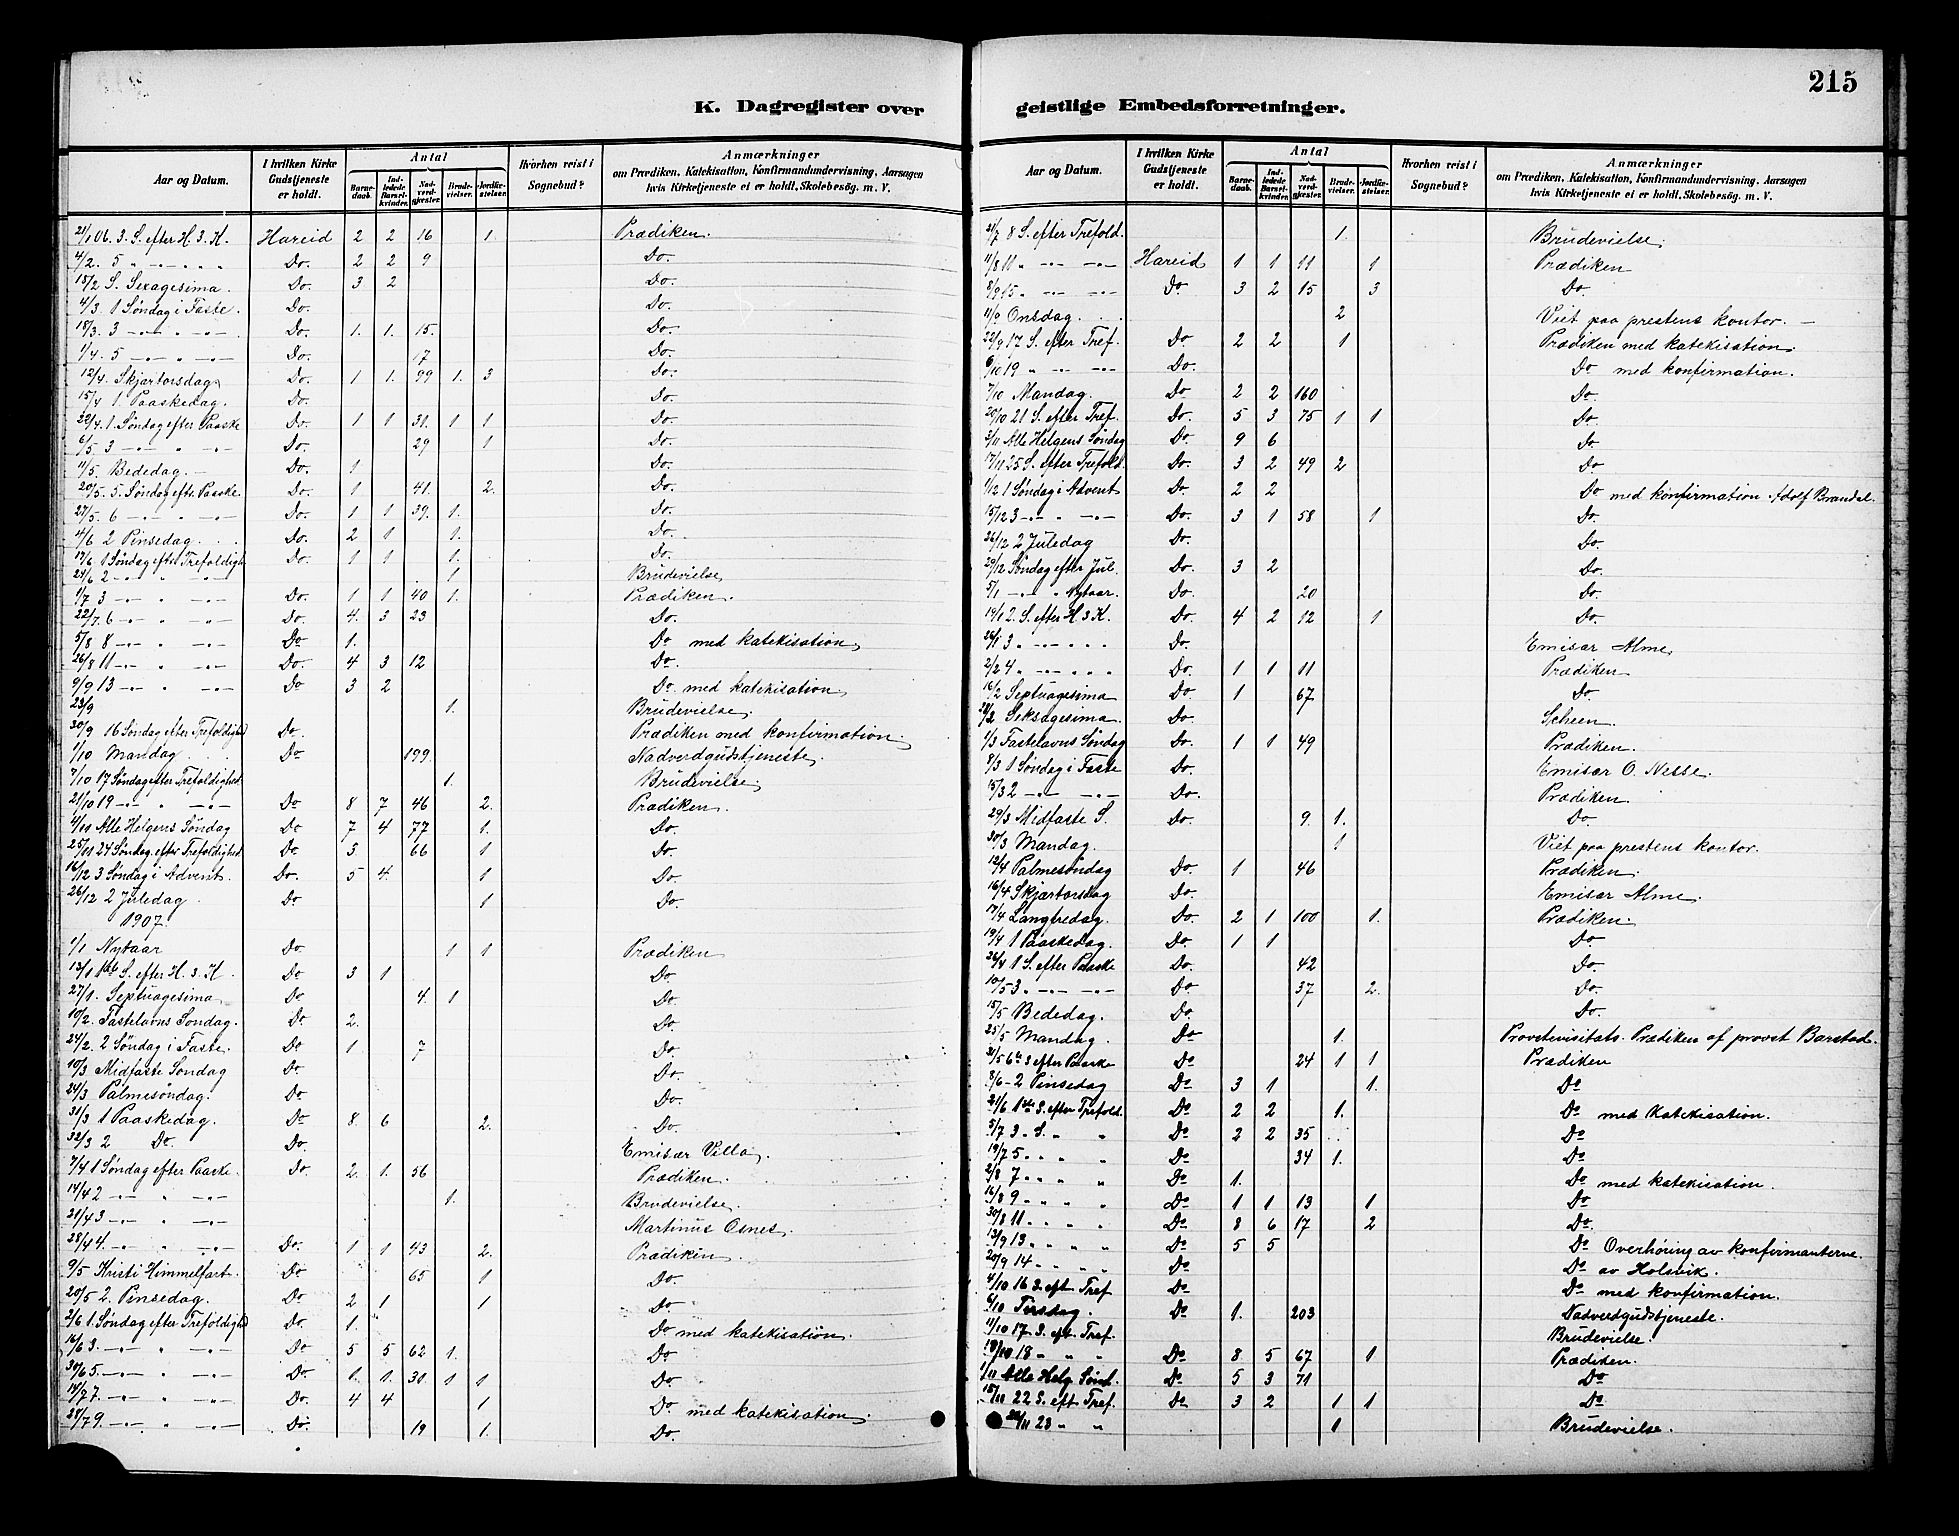 215
K. Dagregister over geistlige Embedsforretninger.
Aar og Datum. I hvilken Kirke Gudstjeneste er holdt. Antal Barnedaab. Indledede Barselkvinder. Nadverdgjester. Brudevielser. Jordfæstelser. Hvorhen reist i Sognebud? Anmærkninger om Prædiken, Katekisation, Konfirmandundervisning, Aarsagen hvis Kirketjeneste ei er holdt, Skolebesøg. m. V.
21/1 06. 3. S. efter H. 3. K. Hareid 2 2 16 1. Prædiken.
4/2. 5 " -"- " " Do. 2 2 9 Do.
18/2 S. Sexagesima. Do. 3 2 Do.
4/3. 1 Søndag i Faste. Do. Do.
18/3. 3 -"- " -"- Do. 1. 1. 15. Do.
1/4. 5 -"- " -"- Do. 17 Do.
12/4. Skjærtorsdag Do. 1 1. 99 1. 3 Do.
15/4 1. Paaskedag. Do. Do.
22/4. 1. Søndag efter Paaske Do. 1 1 31. 1 1 Do.
6/5. 3 -"- " -"- Do. 29 1 Do.
11/5. Bededag. Do. 1 Do.
20/5. 5. Søndag eft. Paaske Do. 1 41. 2. Do.
27/5. 6 -"- " -"- Do. 1 1 39. 1. Do.
4/6 2 Pinsedag. Do. 2 1 1. Do.
17/6. 1 Søndag efter Trefoldigh Do. 1 1 1. Do.
24/6 2 -"- " -"- 1 Brudevielse
1/7 3 -"- " -"- Do. 1 1 40 1. Prædiken.
22/7. 6 -"- " -"- Do. 4. 3 23 Do.
5/8 8 -"- " -"- Do 1. Do med katekisation
26/8 11 -"- " -"- Do. 4 3 12 Do.
9/9 13 -"- " -"- Do 3 2 Do. med katekisation
23/9 1. Brudevielse.
30/9 16 Søndag efter Trefoldighd Do. Prædiken med konfirmation.
1/10 Mandag Do 199. Nadverdgudstjeneste.
7/10 17 Søndag efter Trefoldighed. 1. Brudevielse.
21/10 19 -"- " -"- Do 8 7 46 2. Prædiken.
4/11 Alle Helgens Søndag Do 7 4 77 1. Do.
25/11 24 Søndag efter Trefoldighed. Do 3. 66 1 Do.
16/12 3 Søndag i Advent. Do. 5 4. 1 Do
26/12 2 Juledag. Do 1 Do.
1907.
1/1 Nytaar Do 1 1 Prædiken
13/1 1ste S. efter H. 3. K. Do 3 1 Do
27/1. Septuagesima Do 4. 1 Do
10/2. Fastelavns Søndag. Do 2. Do
24/2. 2 Søndag i Faste. Do 1. 7 Do.
10/3 Midfaste Søndag Do Do.
24/3 Palmesøndag. Do Do.
31/3 1 Paaskedag. Do 8. 6 2. Do.
32/3 2 Do. Do. Emisær Villa.
7/4 1 Søndag efter Paaske. Do. 2. 1. 56 Prædiken.
14/4 2 -"- " -"- 1. Brudevielse.
21/4 3 -"- " -"- Martinus Osnes.
28/4 4. -"- " -"- Do. 1 1 43 2. Prædiken.
9/5 Kristi Himmelfart. Do 65 1 Do.
20/5 2. Pinsedag. Do 2 1 1 Do
2/6 1. Søndag efter Trefoldighd Do. 1. Do med katekisation.
16/6 3. -"- " -"- Do 5 5 62 1. Do
30/6 5. -"- " -"- Do. 1. 1. 31. 1 1 Do.
14/7 7. -"- " -"- Do. 4 4 1 Do med katekisation.
28/7 9. -"- " -"- Do. 19 1. Do.
Aar og Datum. I hvilken Kirke Gudstjeneste er holdt. Antal Barnedaab. Indledede Barselkvinder. Nadverdgjester. Brudevielser. Jordfæstelser. Hvorhen reist i Sognebud? Anmærkninger om Prædiken, Katekisation, Konfirmandundervisning, Aarsagen hvis Kirketjeneste ei er holdt, Skolebesøg. m. V.
2/7 8 S. efter Trefold. 1. Brudevielse.
11/8 11 " -"- -"- Hareid 1 1 11 1 Prædiken
8/9 15 " -"- -"- Do 3 2 15 3 Do.
11/9 Onsdag. 2 Viet paa prestens kontor.
22/9 17 S. efter Tref. Do 2 2 1 Prædiken med katekisation.
6/10 19 " -"- -"- Do. Do med konfirmation.
7/10 Mandag. Do 2 2 160 Do.
20/10 21 S. efter Tref. Do. 5 3 75 1 1 Do.
3/11 Alle Helgens Søndag Do. 9 6 Do
17/11 25 S. efter Trefold. Do. 3 2 49 2 Do
1/12 1 Søndag i Advent Do. 2 2 Do med konfirmation. Adolf Brandal.
15/12 3 -"- " -"- Do. 3 1 58 1 Do.
26/12 2 Juledag Do. Do.
29/12 Søndag efter Jul. Do. 3 2 Do.
5/1 -"- " Nytaar. Do. 20 Do.
19/1 2. S. efter H. 3 K. Do. 4 2 12 1 Do.
26/1 3 " -"- " " Do. Emisær Alme.
2/2 4 " -"- " " Do. 1 1 11 Prædiken
16/2 Septuagesima Do 1 67 Do
23/2 Seksagesima. Do. Scheen.
1/3 Fastelavns Søndag Do. 1 1 49 Prædiken.
8/3 1 Søndag i Faste Do. Emisær O. Nesse.
15/3 2 -"- " -"- Do. Prædiken
29/3 Midfaste S. Do. 9. 1. Do.
30/3 Mandag. 1 Viet paa prestens kontor.
12/4 Palmesøndag Do. 1 46 Prædiken.
16/4 Skjærtorsdag Do. Emisær Alme.
17/4 Langfredag. Do. 2 1 100 1. Prædiken.
19/4 1 Paaskedag. Do. 1 1 Do
26/4 1 S. efter Paaske Do. 42 Do.
10/5 3. " -"- -"- Do. 37 2. Do.
15/5 Bededag. Do. Do.
25/5 Mandag. Do 1. Provstevisitats. Prædiken af provst Barstad.
31/5 6te S efter Paaske Do 24 1 1 Prædiken
8/6 - 2 Pinsedag Do 3 1 1. Do
21/6 1ste S. efter Trefold. Do 2 2 1. Do med katekisation.
5/7 3. S. " " Do 2 2 35 Do
19/7 5 " " " Do 34 1. Do
2/8 7 " " " Do 1. Do med katekisation.
16/8 9 " " " Do 1 1 13 1 Do
30/8 11 " " " Do 8 6 17 2 Do.
13/9 13 " " " Do 5 5 Do Overhøring av konfirmanterne.
20/9 14 " " " Do Do av Holsvik.
4/10 16 S. eft Tref Do med konfirmation.
6/10 Tirsdag. Do 1. 203 Nadverdgudstjeneste.
11/10 17 S. eft Tref. Brudevielse.
18/10 18 " " " Do 8 5 67 1 Prædiken.
1/11 Alle Helg. Sønd. Do 5 3 71 Do
15/11 22 S. eft Tref. Do 3 2 1 1 Do
22/11 23 " " 1 Brudevielse.